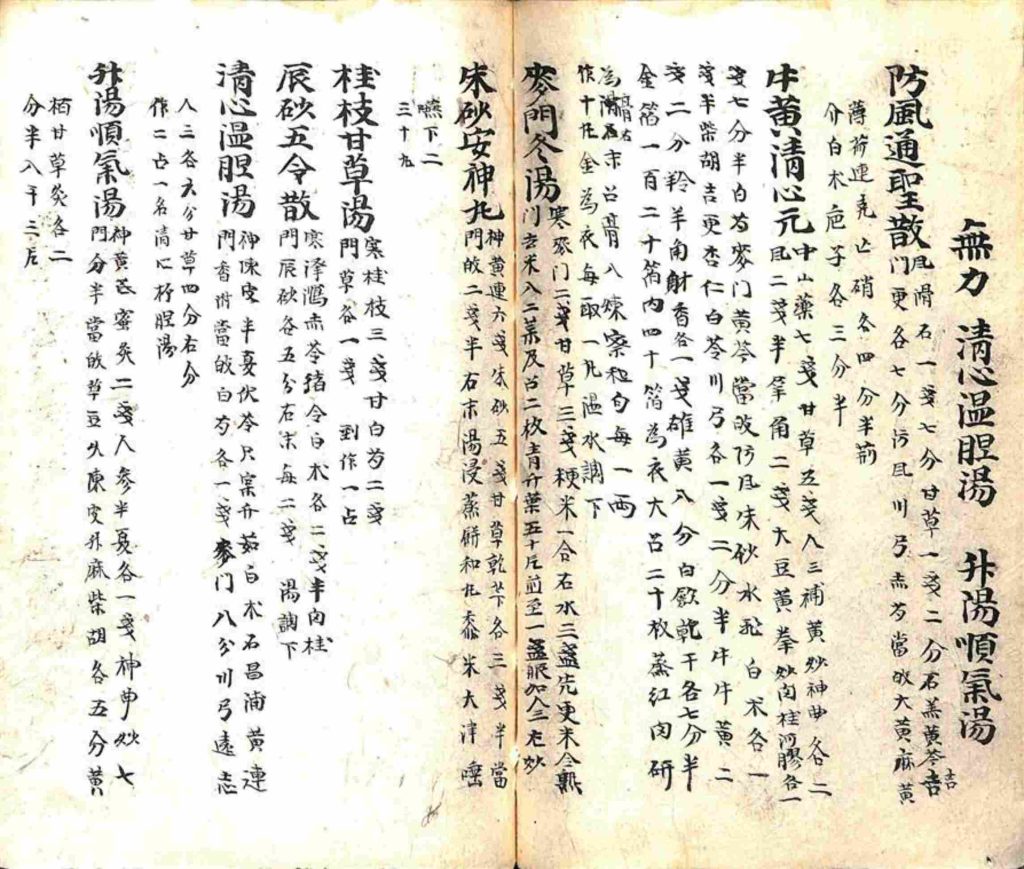 無力 清心温胆湯 升湯順氣湯
防風通聖散 風門 滑石一戔七分甘草一戔二分石羔黄芩吉
更各七分防風川弓赤芍當皈大黄麻黄
薄荷連尭亡硝各四分半荊
介白朮梔子各三分半
牛黄清心元 中風 山薬七戔甘草五戔人三補黄炒神曲各二
二戔半犀角二戔大豆黄拳炒肉桂阿膠各一
戔七分半白芍麥門黄芩當皈防風朱砂水飛白朮各一
戔半柴胡吉更杏仁白苓川弓各一戔二分半牛黄二
戔二分羚羊角射香各一戔雄黄八分白斂乾干各七分半
金箔一百二十箔內四十箔為衣大召二十枚蒸紅肉研
為膏右末召膏八煉蜜和匀每一両
作十丸金為衣每取一丸温水調下
麥門冬湯 寒門 麥門二戔甘草三戔粳米一合右水三盞先更米令熟
去米入二薬及召二枚青竹葉五十片煎至一盞服加人三尤炒
朱砂安神丸 神門 黄連六戔朱砂五戔甘草乾芐各三戔半當
皈二戔半右末湯浸蒸餅和丸黍米大津唾
嚥下二
三十丸
桂枝甘草湯 寒門 桂枝三戔甘白芍二戔
草各一戔 剉作一占
辰砂五令散 寒門 澤瀉赤苓猪令白朮各二戔半肉桂
辰砂各五分右末每二戔 湯調下
清心温胆湯 神門 陳皮半夏伏苓只宲竹茹白朮石昌蒲黄連
香附當皈白芍各一戔麥門八分川弓遠志
人三各六分甘草四分右分
作二占一名清心抒胆湯
升湯順氣湯 神門 黄芪蜜炙二戔人参半夏各一戔神曲炒七
分半當皈草豆久陳皮升麻柴胡各五分黄
栢甘草炙各二
分半入干三片